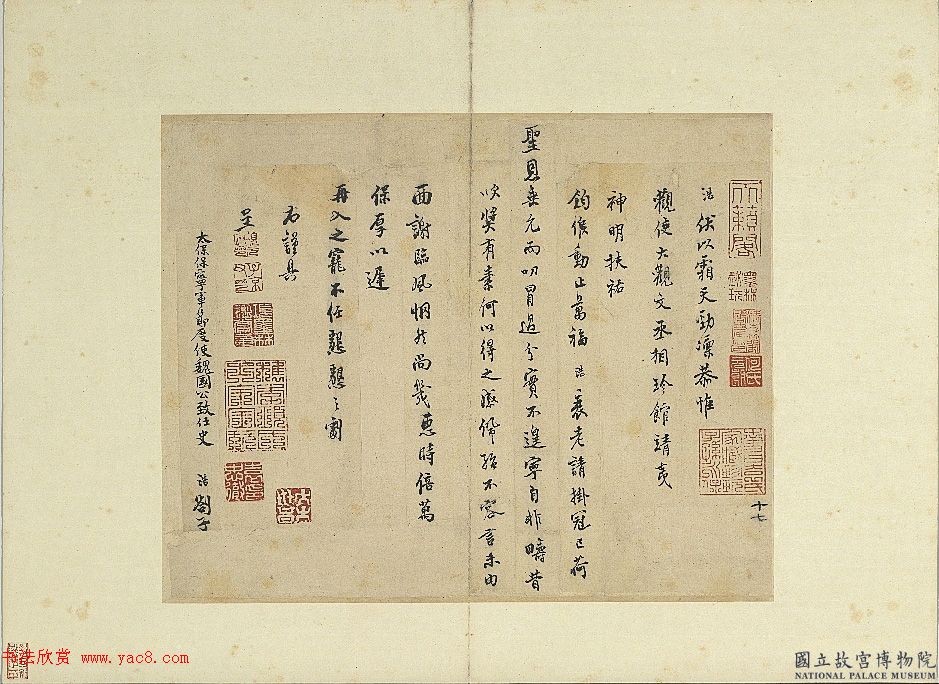 十七
浩伏以霜天勁凜恭惟
觀使大觀文丞相珍館靖夷
神明扶祐
鈞候動止萬福浩衰老請掛冠已荷
聖恩垂允而叨冒過分實不遑寧自非疇昔
吹獎有素何以得之感佩殆不容言未由
面謝臨風惘然尚幾惠時倍萬
保厚以遲
再入之寵不任懇懇之劄
右謹具
呈
太保保寧軍節度使魏國公致仕史 浩 劄子
書法欣赏 www.yac8.com
國立故宮博物院
NATIONAL PALACE MUSEUM